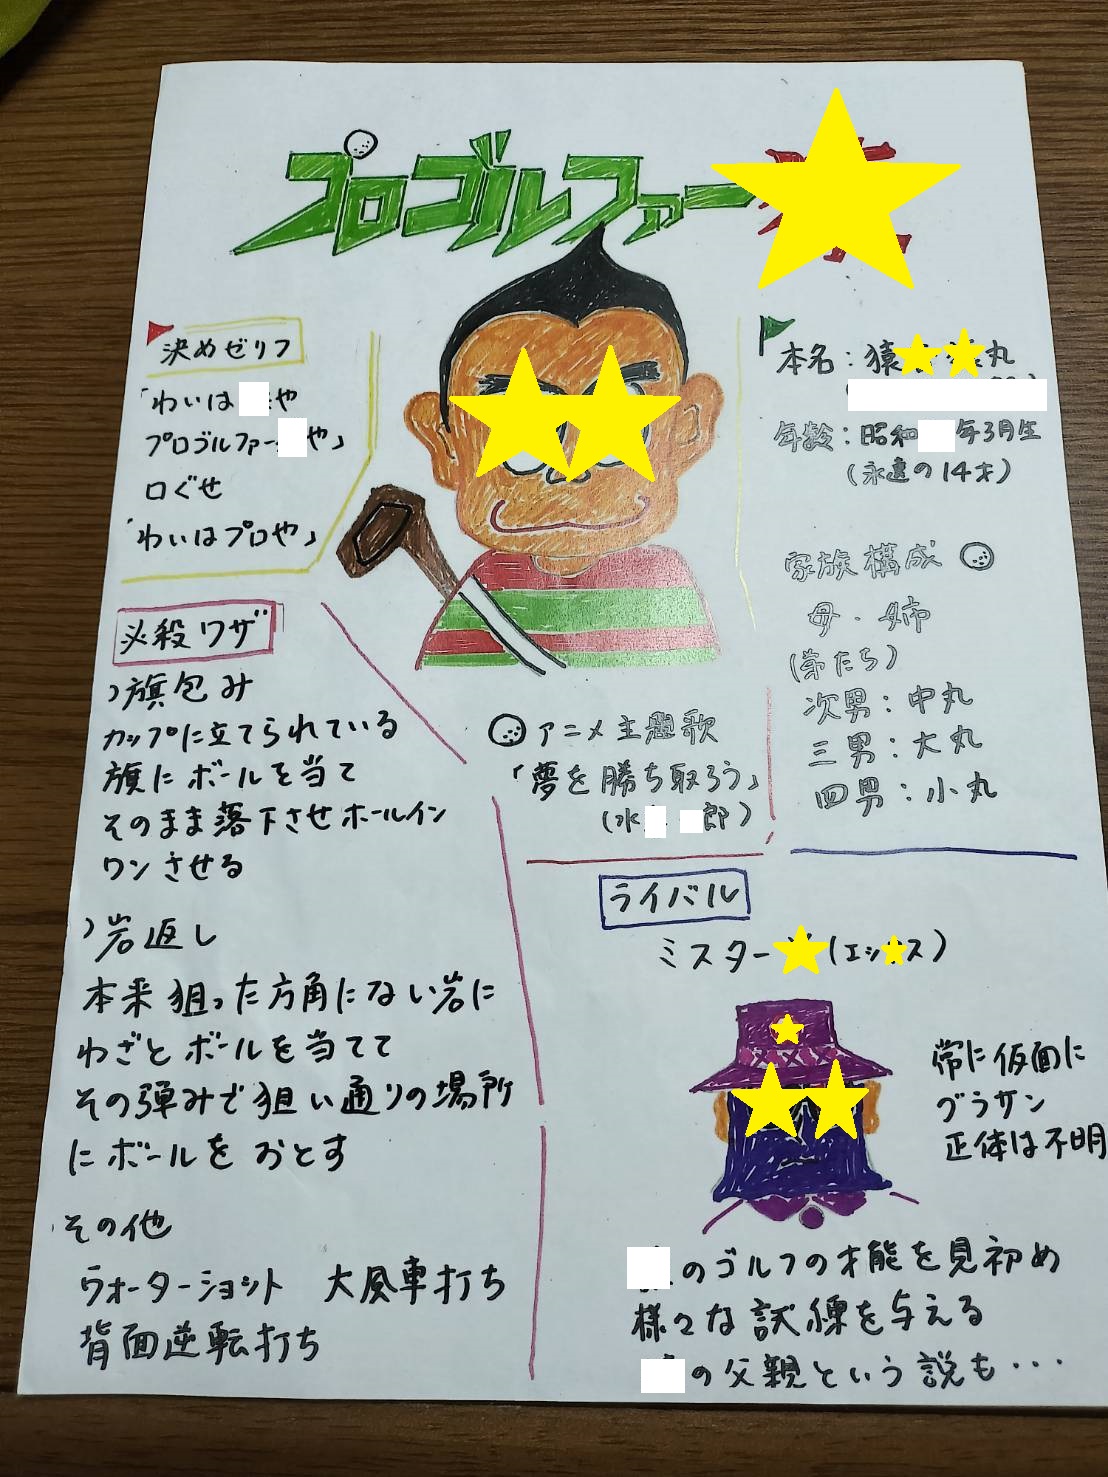 プロゴルファー
決めゼリフ
「わいは や
プロゴルファー や」
口ぐせ
「わいはプロや」
必殺ワザ
)旗包み
カップに立てられている
旗にボールを当て
そのまま落下させホールイン
ワンさせる
)岩返し
本来狙った方角にない岩に
わざとボールを当てて
その弾みで狙い通りの場所
にボールをおとす
その他
ウォーターショット 大風車打ち
背面逆転打ち
アニメ主題歌
「夢を勝ち取ろう」
(水 郎)
本名:猿 丸
年齢:昭和 年3月生
(永遠の14才)
家族構成
母・姉
(弟たち)
次男:中丸
三男:大丸
四男:小丸
ライバル
ミスター (エッ ス)
常に仮面に
グラサン
正体は不明
のゴルフの才能を見初め
様々な試練を与える
の父親という説も・・・